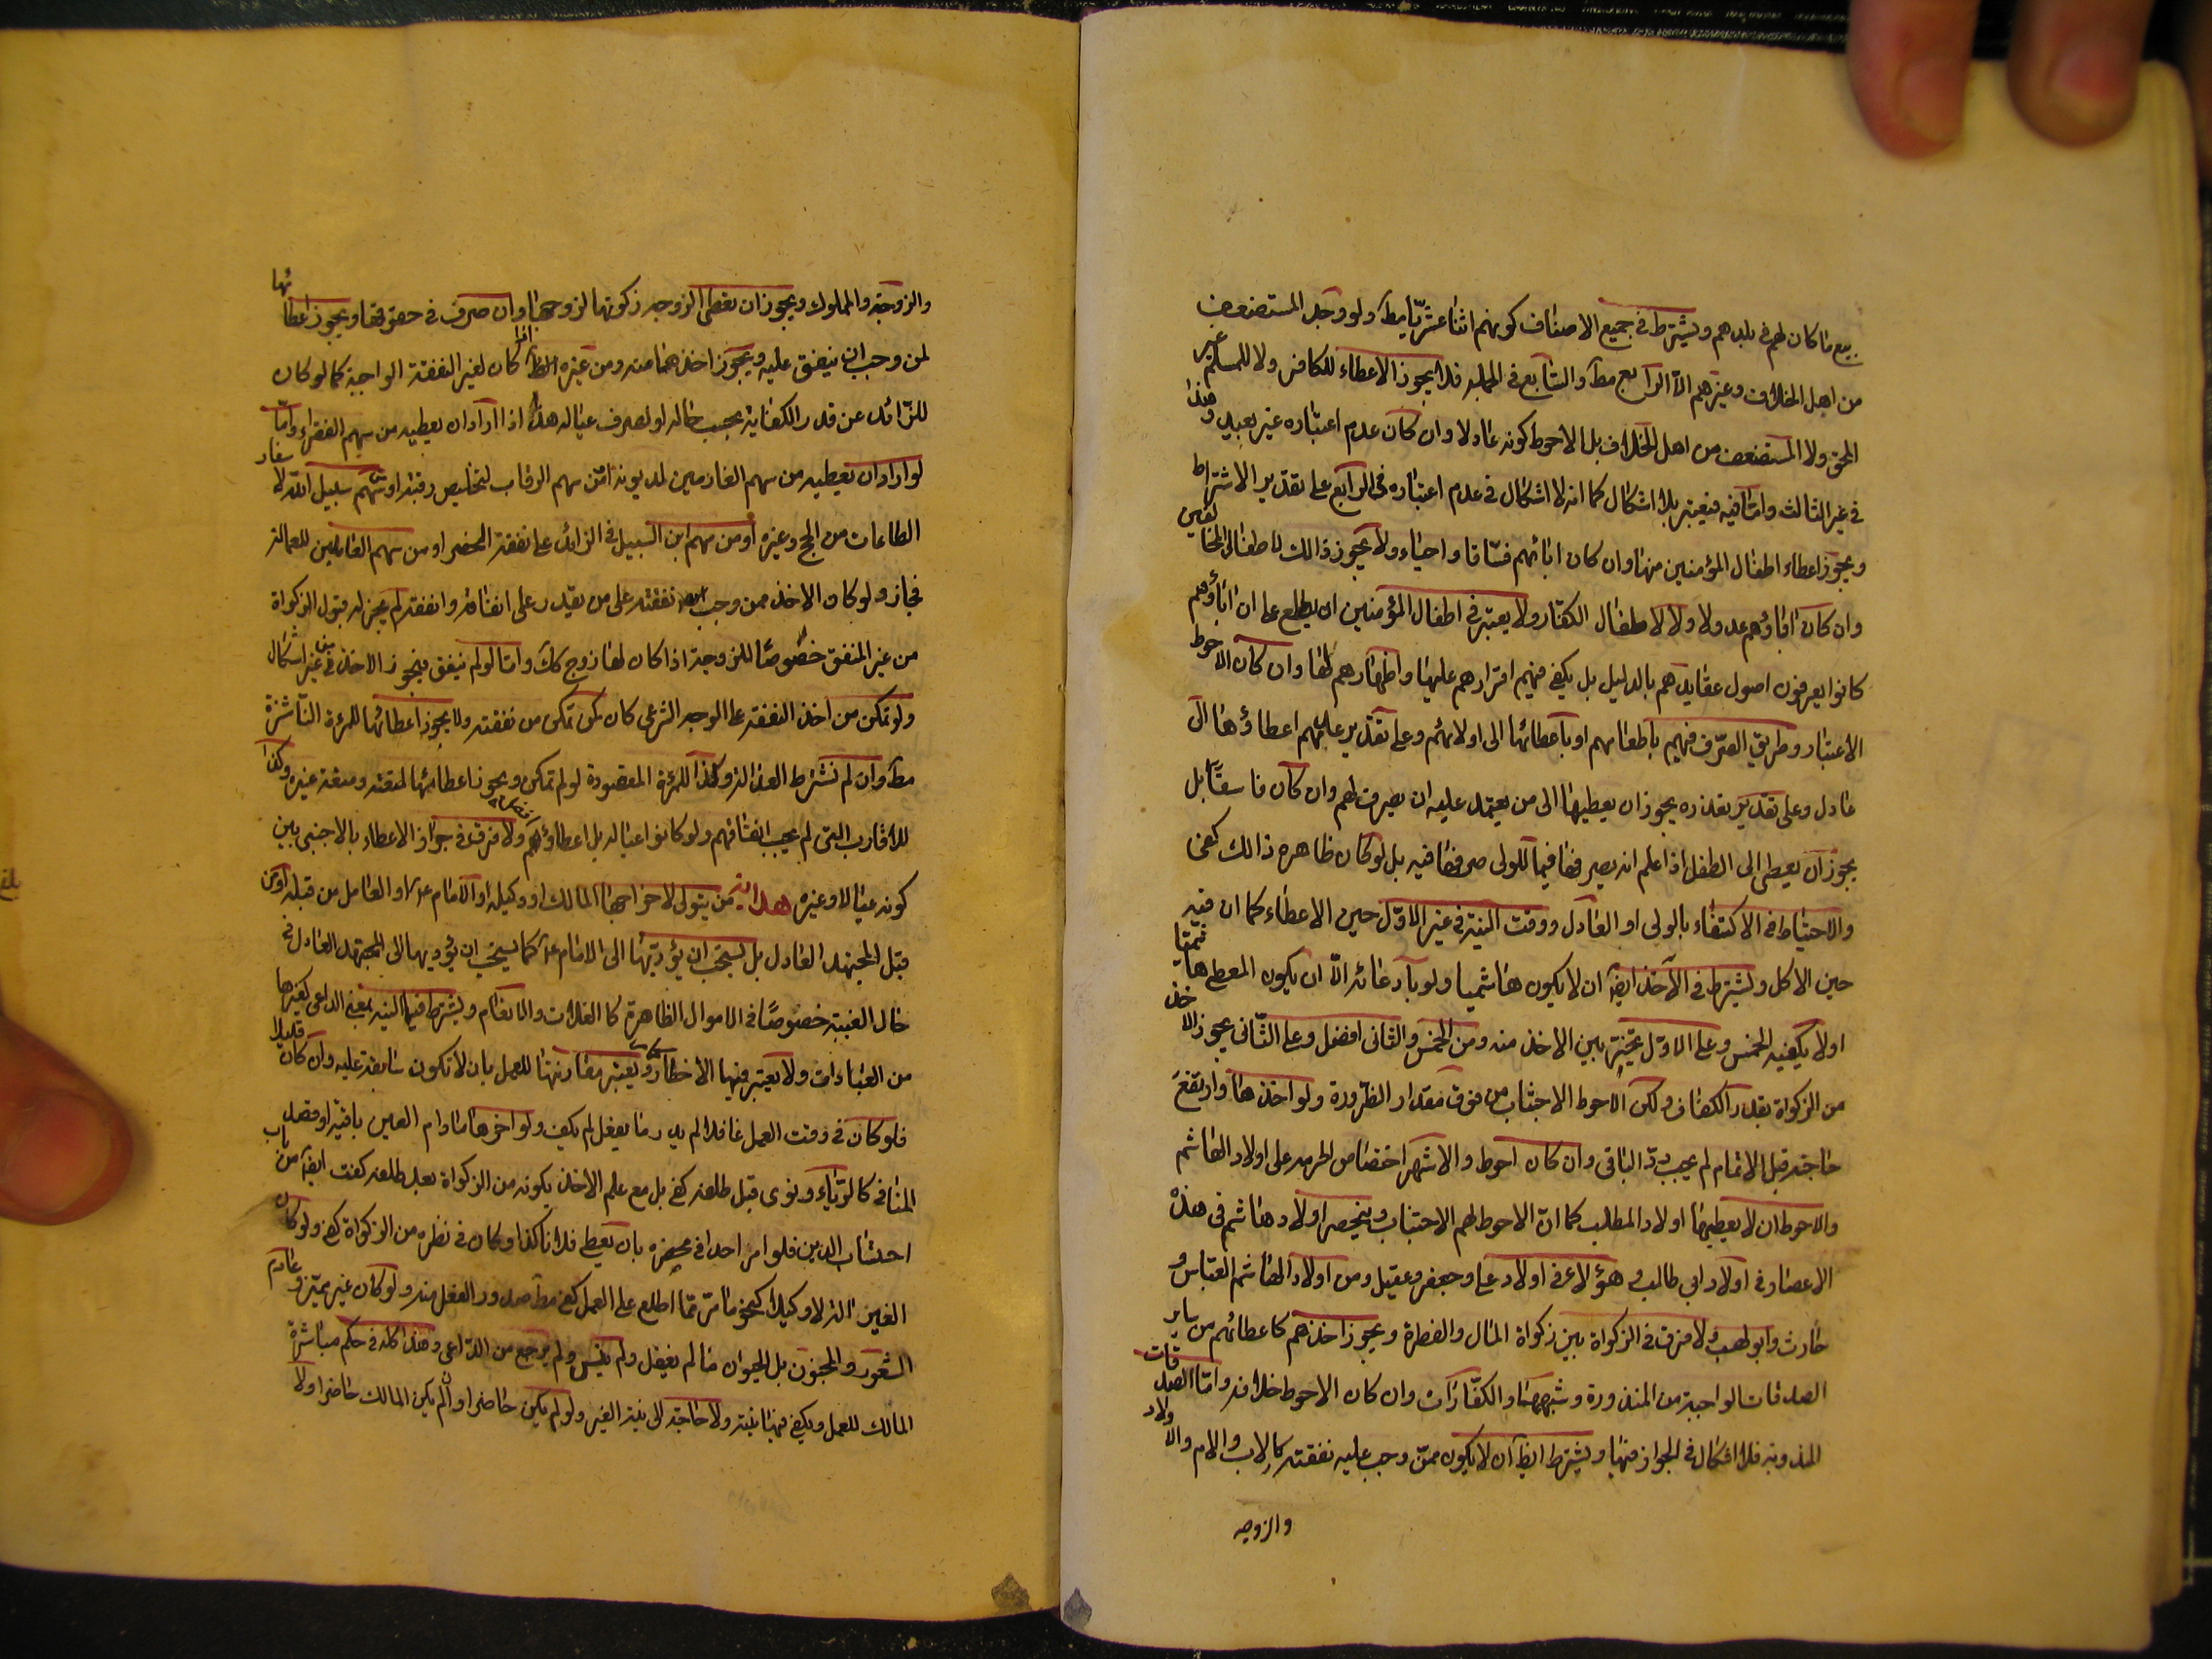 بيع ما كان لهم في بلدهم ويشترط في جميع الاصناف كونهم اثنا عشريّا مط ولو وجد المستضعف
من اهل الخلاف وغيرهم الّا الرابع مط والسّابع في الجمله فلا يجوز الاعطاء للكافر ولا للمسلم غير
المحق ولا المستضعف من اهل الخلاف بل الاحوط كونه عادلا وان كان عدم اعتباره غير بعيد وهذا
في غير الثالث وامّا فيه فيعتبر بلا اشكال كما انه لا اشكال في عدم اعتباره في الرابع على تقدير الاشتراط
ويجوز اعطاء اطفال المؤمنين منها وان كان ابائهم فسّاقا واحياء ولا يجوز ذالك لاطفال المخالفين
وان كان اباؤهم عدولا ولا لاطفال الكفّار ولا يعتبر في اطفال المؤمنين ان يطلع على ان اباؤهم
كانوا يعرفون اصول عقايدهم بالدليل بل يكفي فيهم اقرارهم عليها واظهارهم لها وان كان الاحوط
الاعتبار وطريق الصّرف فيهم باطعامهم او باعطائها الى اوليائهم وعلى تقدير عدمهم اعطاؤها الى
عادل وعلى تقدير تعذره يجوز ان يعطيها الى من يعتمد عليه ان يصرف لهم وان كان فاسقا بل
يجوز ان يعطى الى الطفل اذا علم انه يصرفها فيما للولى صرفها فيه بل لو كان ظاهره ذالك كفى
والاحتياط في الاكتفاء بالولى او العادل ووقت النية في غير الاوّل حين الاعطاء كما ان فيه
حين الاكل ويشترط في الآخذ ايضا ان لا يكون هاشميا ولو بادعائه الّا ان يكون المعطى هاشميا
اولا يكفيه الخمس وعلى الاوّل يتخيّر بين الاخذ منه ومن الخمس والثانى افضل وعلى الثّانى يجوز الاخذ
من الزكواة بقدر الكفاف ولكن الاحوط الاجتناب من فوق مقدار الضّرورة ولو اخذها وارتفع
حاجته قبل الاتمام لم يجب ردّ الباقى وان كان احوط والاشهر اختصاص الحرمه على اولاد الهاشم
والاحوط ان لا يعطيها اولاد المطلب كما انّ الاحوط لهم الاجتناب وينحصر اولاد هاشم في هذه
الاعصار في اولاد ابى طالب وهؤلاء في اولاد على وجعفر وعقيل ومن اولاد الهاشم العبّاس و
حارث وابو لهب ولا فرق في الزكواة بين زكواة المال والفطرة ويجوز اخذهم كاعطائهم من ساير
الصدقات الواجبة من المنذورة وشبهها والكفّارات وان كان الاحوط خلافه وامّا الصدقات
المندوبة فلا اشكال في الجواز فيها ويشترط ايضا ان لا يكون ممّن وجب عليه نفقته كالاب والام والاولاد
والزوجه
والزوجة والمملوك ويجوز ان تعطى الزوجه زكوتها لزوجها وان صرف في حقوقها ويجوز اعطائها
لمن وجب ان ينفق عليه ويجوز اخذهما منه ومن غيره اذا كان لغير النفقة الواجبة كما لو كان
للزّائد عن قدر الكفاية بحسب حاله او لصرف عياله هذا اذا اراد ان يعطيه من سهم الفقراء وامّا
لو اراد ان يعطيه من سهم الغارمين لديونه او من سهم الرقاب لتخليص رقبته او من سهم سبيل اللّه لا
الطاعات من الحج وغيره او من سهم ابن السبيل في الزائد على نفقة الحضر او من سهم العاملين للعمالة
فجاز ولو كان الاخذ ممن وجب نفقته على من يقدر على انفاقه وانفقه لم يجز له قبول الزكواة
من غير المنفق خصوصا للزوجة اذا كان لها زوج كك وامّا لو لم ينفق فيجوز الاخذ من غير اشكال
ولو تمكن من اخذ النفقة على الوجه الشرعى كان كمن تمكن من نفقته ولا يجوز اعطائها للمرءة النّاشزة
مط وان لم نشترط العدالة وكذا للمرءة المعقودة لو لم تمكن ويجوز اعطائها لمتعته ومتعة غيره وكذا
للاقارب التى لم يجب انفاقهم ولو كانوا عياله بل اعطاؤهم ولا فرق في جواز الاعطاء بالاجنبى بين
كونه عيالا وغيره هداية من يتولى لاخراجها المالك او وكيله او الامام ع او العامل من قبله او من
قبل المجتهد العادل بل يستحب ان يؤديها الى الامام ع كما يستحب ان يؤديها الى المجتهد العادل في
حال الغيبة خصوصا في الاموال الظاهرة كالغلات والانعام ويشترط فيها النية بمعنى الداعى كغيرها
من العبادات ولا يعتبر فيها الاخطار ويعتبر مقارنتها للعمل بان لا تكون سابقة عليه وان كان قليلا
فلو كان في وقت العمل غافلا لم يدر ما يفعل لم يكف ولو اخرها مادام العين باقية او قصد
المنافى كالريّاء ونوى قبل طلعه كفى بل مع علم الاخذ بكونه من الزكواة بعد طلعه كفت ايضا من باب
احتساب الدين فلو امر احدا في محضره بان يعطى فلانا كذا وكان في نظره من الزكواة كفى ولو كان
الغير الة لا وكيلا كنحو ما مرّ ممّا اطلع على العمل كفى مط صدور الفعل منه ولو كان غير مميّز وعادم
الشعور والمجنون بل الحيوان ما لم يغفل ولم ينس ولم يرجع من الدّاعى وهذا كله في حكم مباشرة
المالك للعمل ويكفي فيها نيته ولا حاجة الى نية الغير ولو لم يكن حاضرا او لم يكن المالك حاضرا ولا